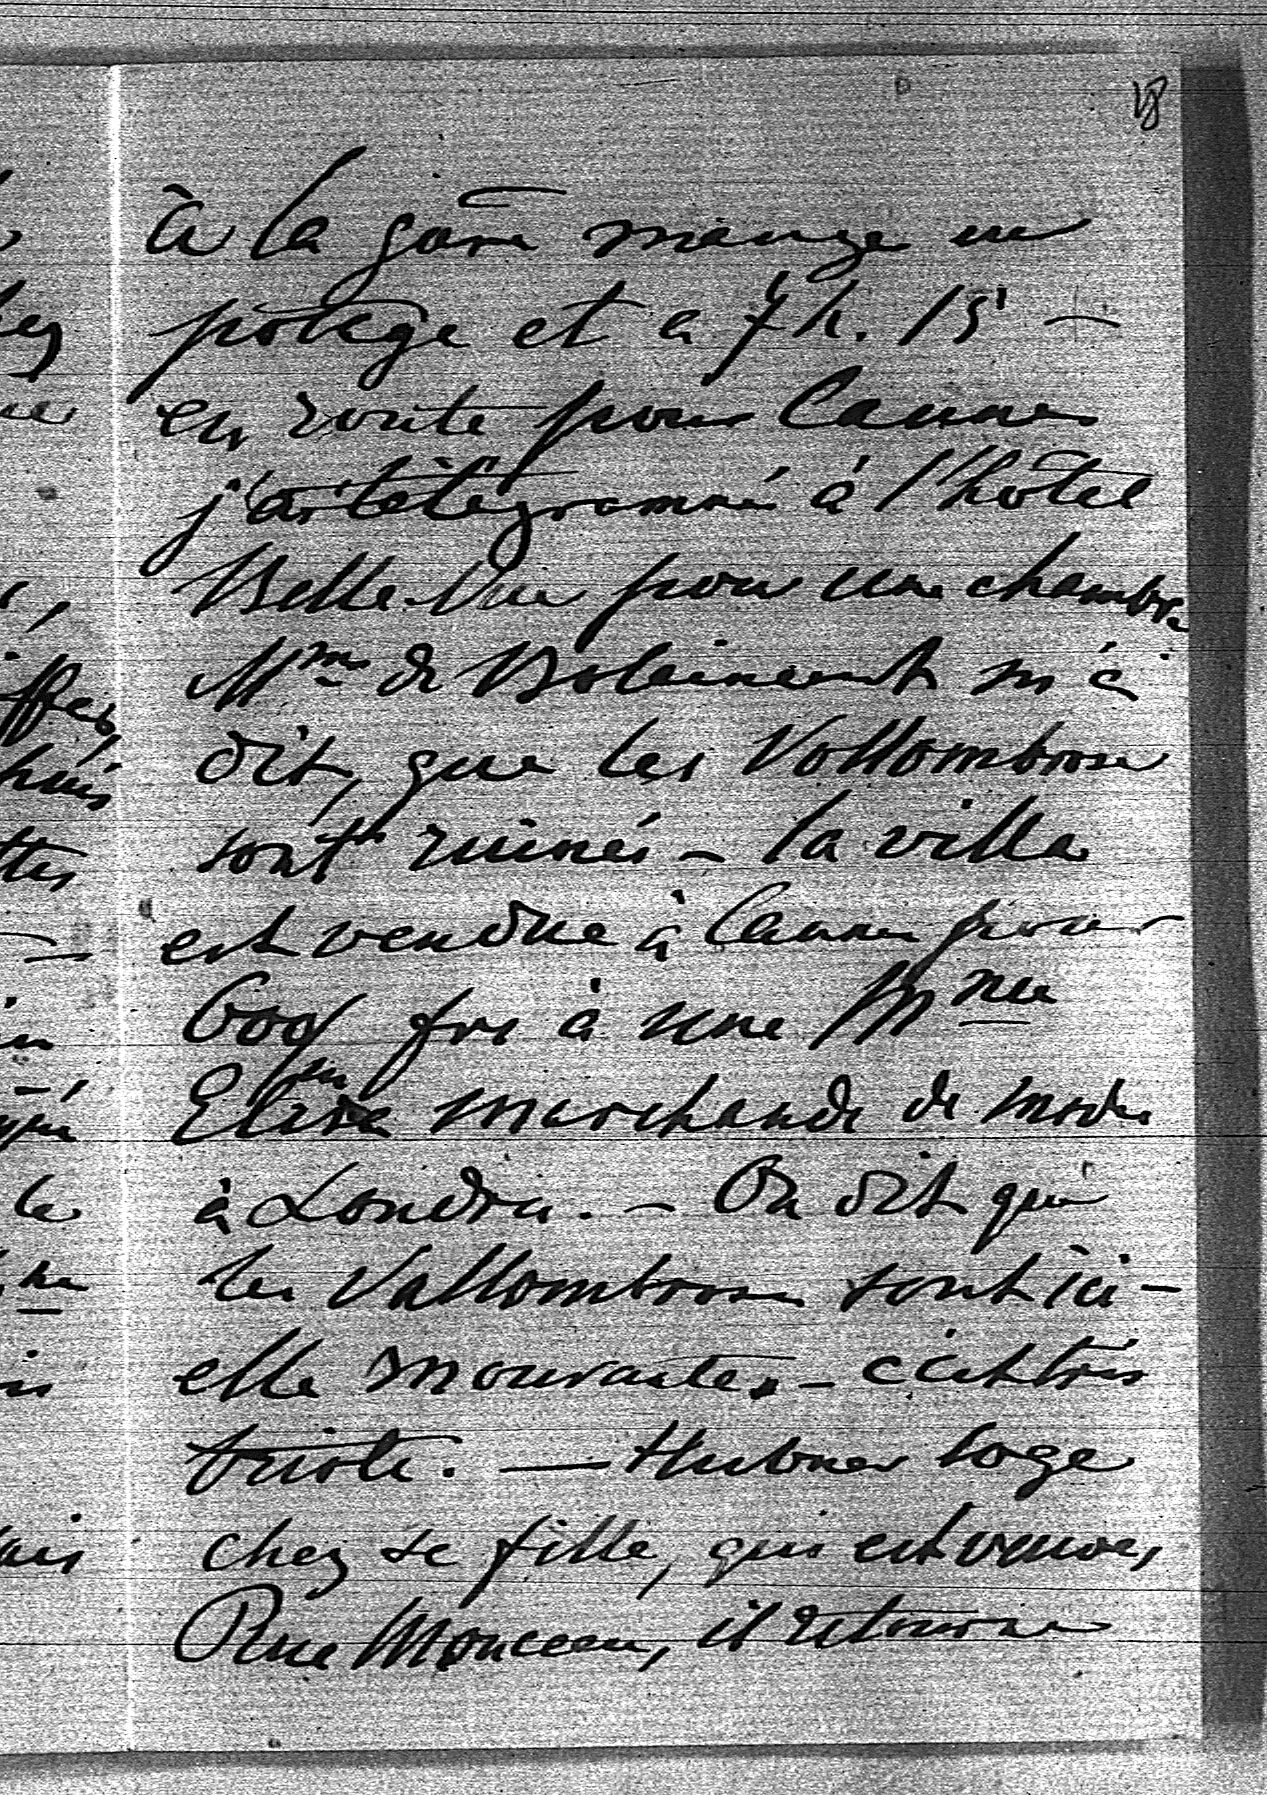 18
à la gare mange un
potage et a 7 h. 15 —
en route pour Cannes
j'ai télégrammé à l'hôtel
Belle-Vue pour une chambre
Mme de m'a
dit, que les Vallombrosa
sont ruinés — la villa
est vendue à Cannes pour
600/ frs à une Mme
Elise marchande de modes
à Londres. — On dit que
les Vallombrosa sont ici —
elle mourante, — c'est très
triste. — Hubner loge
chez sa fille, qui est veuve,
Rue Monceau, il retourne